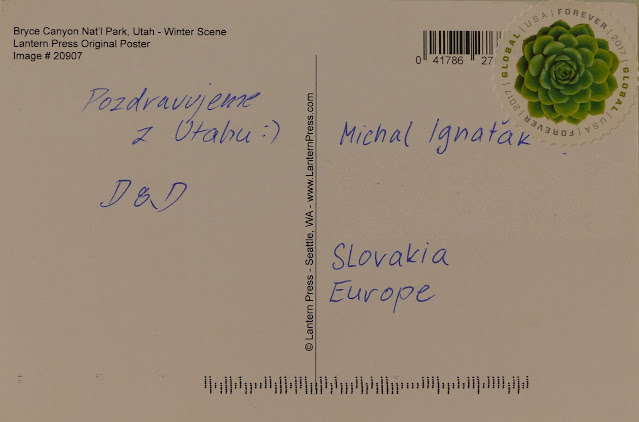 Bryce Canyon Nat'l Park, Utah - Winter Scene
Lantern Press Original Poster
Image # 20907
Pozdravujeme
z Utahu :)
D & D
© Lantern Press - Seattle, WA - www.LanternPress.com
0 41786 27
GLOBAL | USA | FOREVER | 2017 | GLOBAL | USA | FOREVER | 2017 |
Michal Ignaťák
Slovakia
Europe